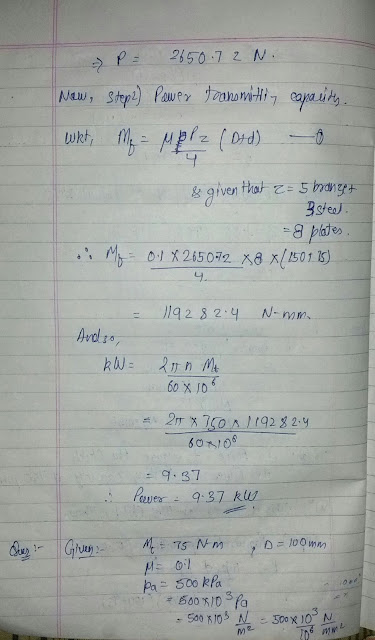 ⇒ P = 2650.72 N.
Now, step2) Power transmitting capacity.
WKT, Mf = μPz/4 (D+d) —①
& given that z = 5 bronze +
3 steel.
= 8 plates.
∴ Mf = 0.1 × 265072 × 8 × (150+75)/4
= 119282.4 N-mm.
And so,
kW = 2πn Mt / 60 × 10⁶
= 2π × 750 × 119282.4 / 60×10⁶
= 9.37
∴ Power = 9.37 kW
Ques :- Given :- Mt = 75 N-m , D = 100mm
μ = 0.1
Pa = 500 kPa
= 500×10³ Pa
= 500×10³ N/m² = 500×10³/10⁶ N/mm²